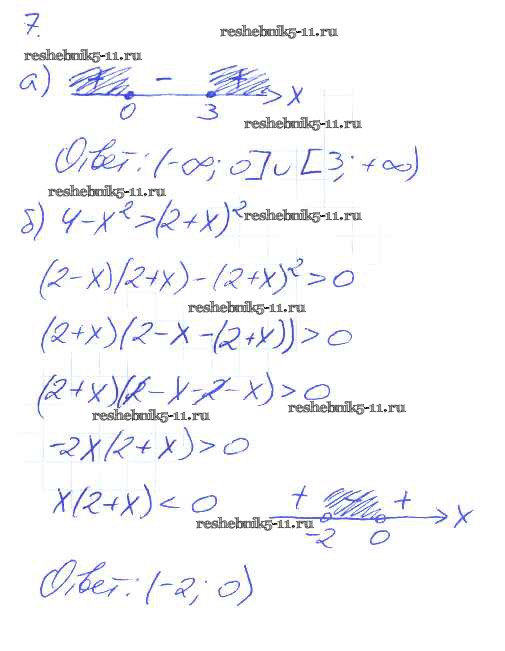 7.
reshebnik5-11.ru
reshebnik5-11.ru
а) + - + x
0 3
reshebnik5-11.ru
Ответ: (-∞; 0] ∪ [3; +∞)
reshebnik5-11.ru
б) 4-x²>(2+x)²
reshebnik5-11.ru
(2-x)(2+x)-(2+x)²>0
reshebnik5-11.ru
(2+x)(2-x-(2+x))>0
(2+x)(2-x-2-x)>0
reshebnik5-11.ru
reshebnik5-11.ru
-2x(2+x)>0
x(2+x)<0
+ + x
reshebnik5-11.ru
-2 0
Ответ: (-2; 0)